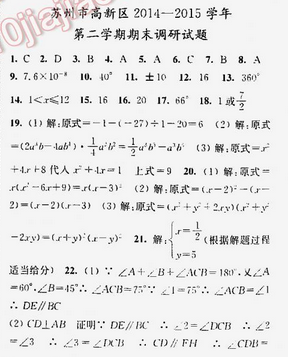 苏州市高新区 2014—2015 学年
第二学期期末调研试题
1. C 2. D 3. B 4. A 5. A 6. C 7. B 8. A
9. 7.6×10⁻⁸ 10. 40° 11. ±10 12. 16 13. 360°
14. 1<x≤12 15. 16 16. 15 17. 66° 18. 1或7/2
19. (1) 解:原式=-1-(-27)÷1-20=6 (2) 解:原式
=(2a⁴b-4ab⁴)·1/4a²b²= (3) 解:原式=x²
+4x+8 代入 x²+4x=1 上式=9 20. (1) 解:原式=
x(x²-6x+9)=x(x-3)² (2) 解:原式=
=(x-2)(x-3) (3) 解:原式=(x²+y²+2xy)(x²+y²
-2xy)=(x+y)²(x-y)² 21. 解:{x=1/2
y=5 (根据解题过程
适当给分) 22. (1) ∵ ∠A+∠B+∠ACB=180°,又∠A
=60°,∠B=45°∴ ∠ACB=75°∵ ∠1=75°∴ ∠ACB=∠1
∴ DE∥BC
(2) CD⊥AB 证明∵ DE∥BC ∴ ∠2=∠DCB ∴ ∠2
=∠3 ∴ ∠3=∠DCB ∴ CD∥FH ∴ ∠CDB=